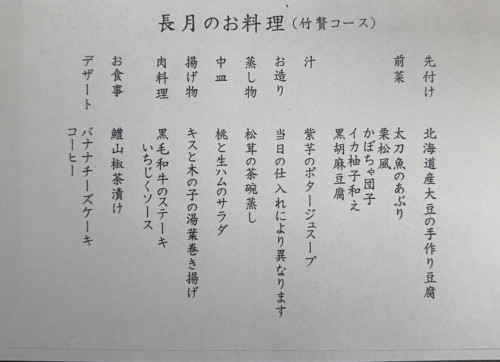 長月のお料理（竹贅コース）
先付け　北海道産大豆の手作り豆腐
前菜　太刀魚のあぶり
栗松風
かぼちゃ団子
イカ柚子和え
黒胡麻豆腐
汁　紫芋のポタージュスープ
お造り　当日の仕入れにより異なります
蒸し物　松茸の茶碗蒸し
中皿　桃と生ハムのサラダ
揚げ物　キスと木の子の湯葉巻き揚げ
肉料理　黒毛和牛のステーキ
いちじくソース
お食事　鱧山椒茶漬け
デザート　バナナチーズケーキ
コーヒー